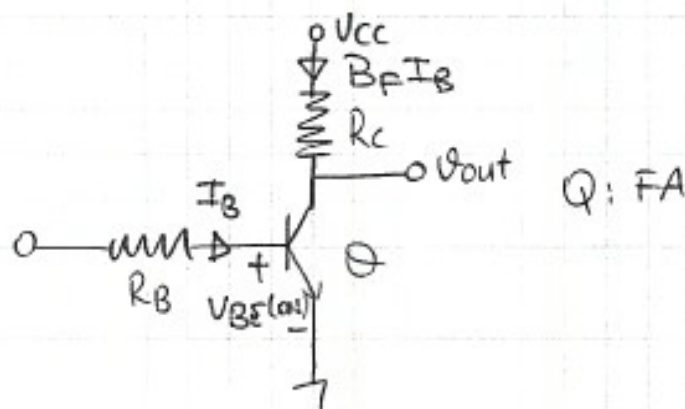 VCC
BF IB
RC
Vout
Q: FA
IB
RB
+
VBE(on)
-
Q